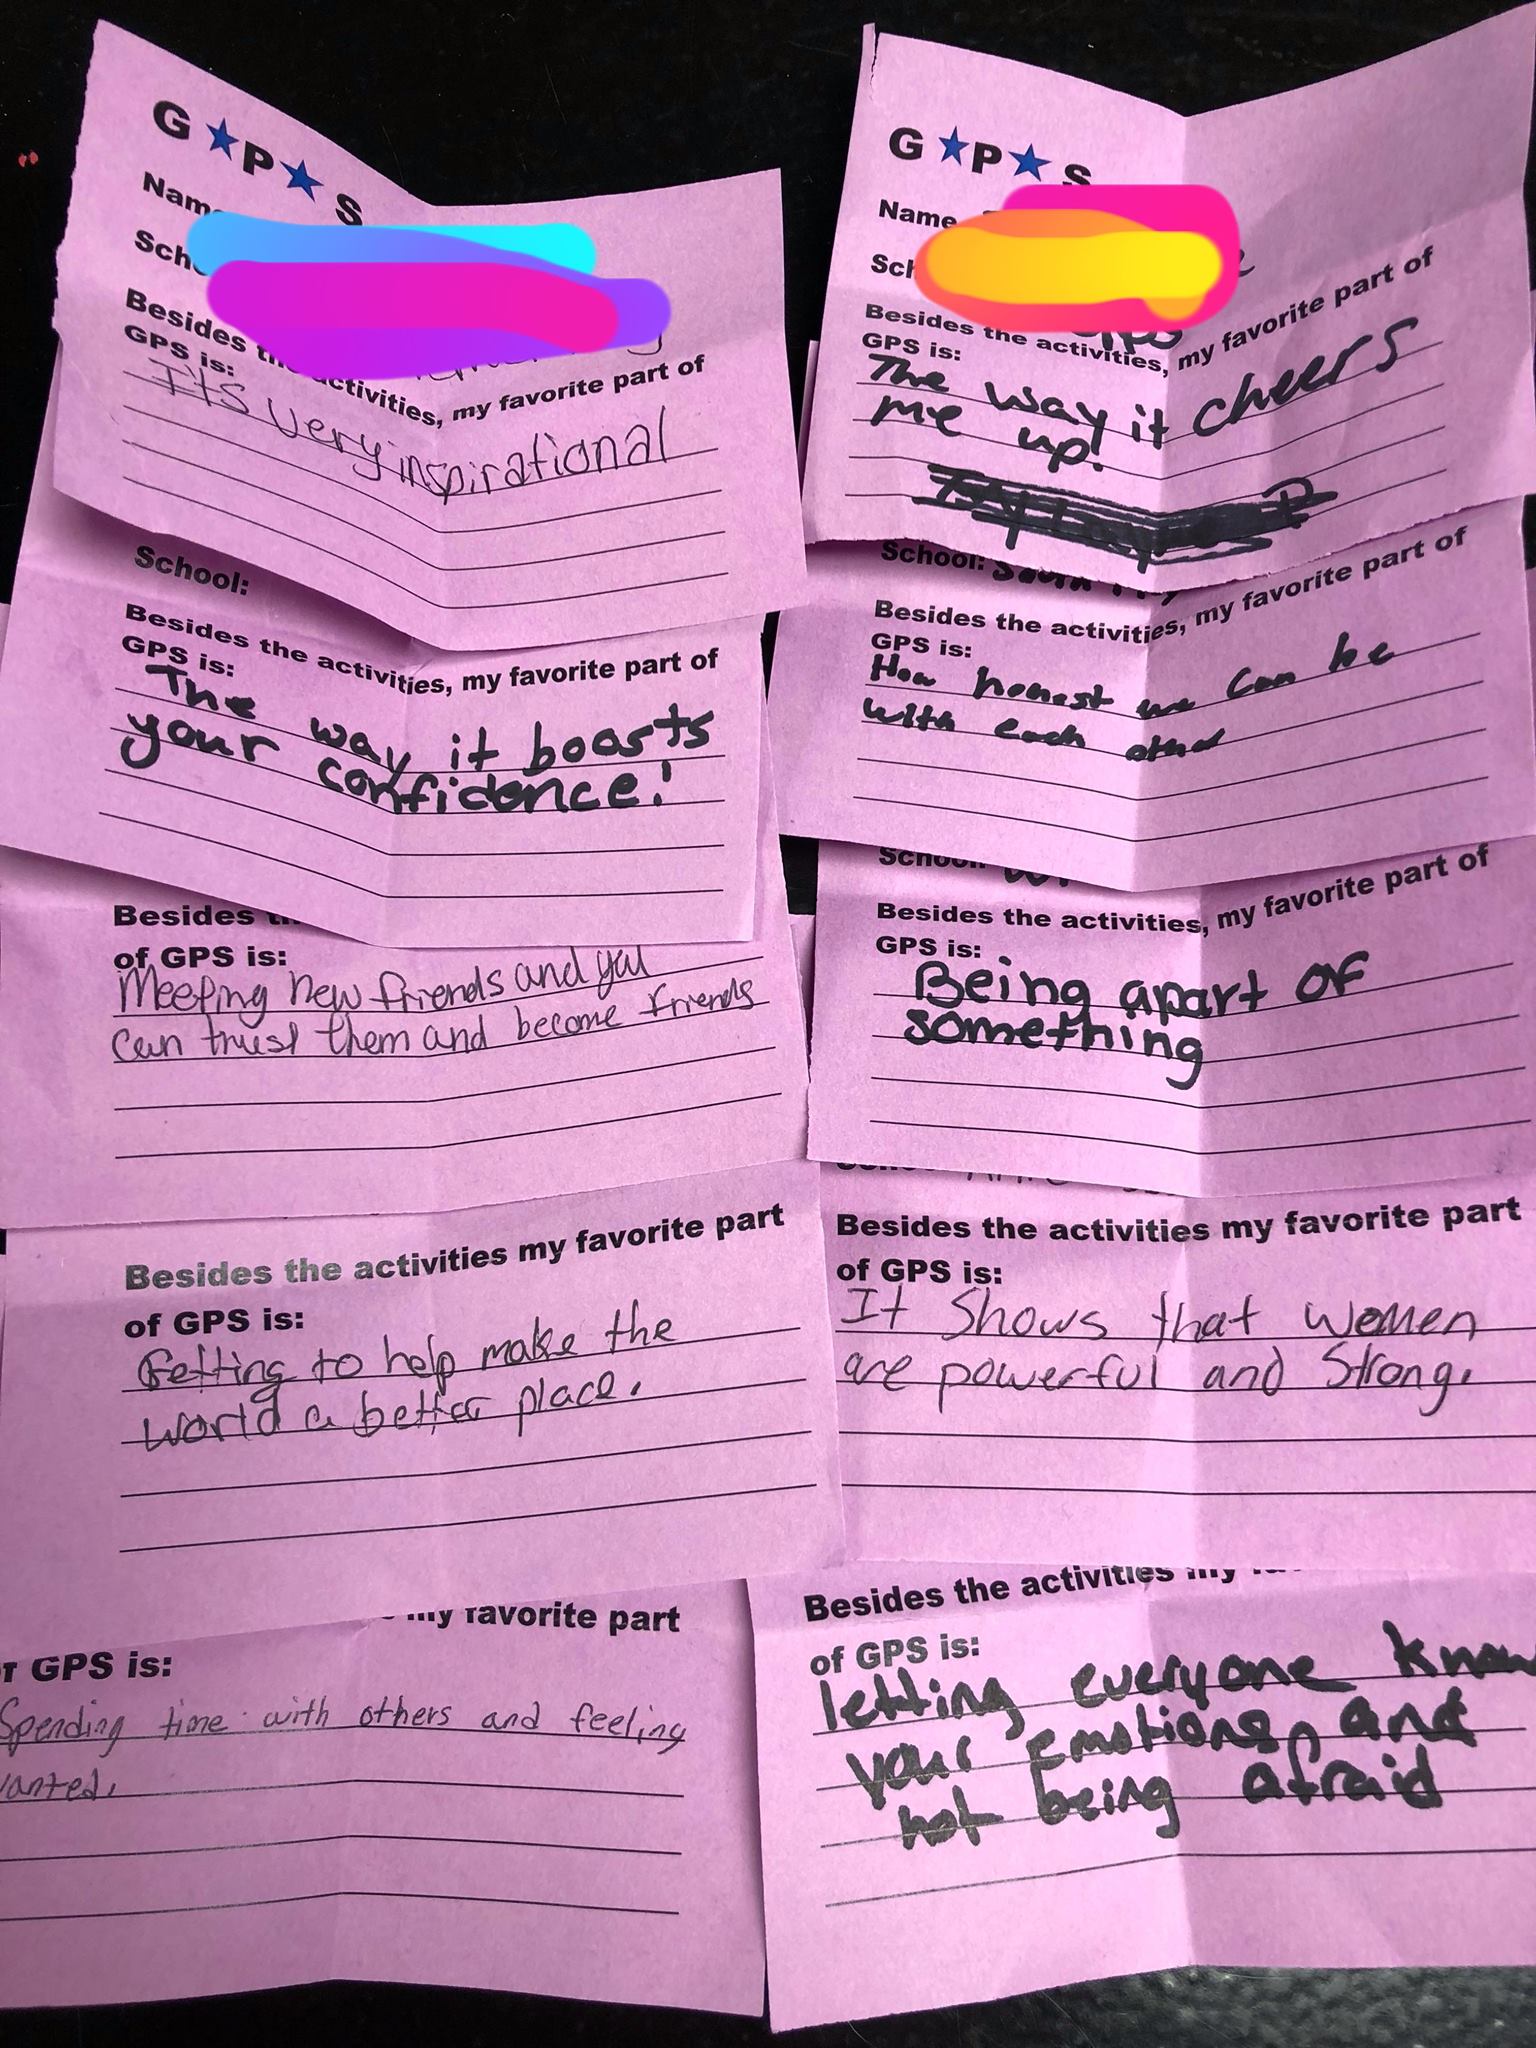 G★P★S
Name
Besides activities, my favorite part of
GPS is:
It's very inspirational
School:
Besides the activities, my favorite part of
GPS is:
The way it boosts
your confidence!
Besides
of GPS is:
Meeting new friends and yal
can trust them and become friends
Besides the activities my favorite part
of GPS is:
Getting to help make the
world a better place.
my favorite part
GPS is:
Spending time with others and feeling
G★P★S
Name
Besides the activities, my favorite part of
GPS is:
The way it cheers
me up!
School:
Besides the activities, my favorite part of
GPS is:
How honest we can be
with each other
School:
Besides the activities, my favorite part of
GPS is:
Being apart of
something
Besides the activities my favorite part
of GPS is:
It shows that women
are powerful and strong.
Besides the activities my
of GPS is:
letting everyone know
your emotions, and
not being afraid